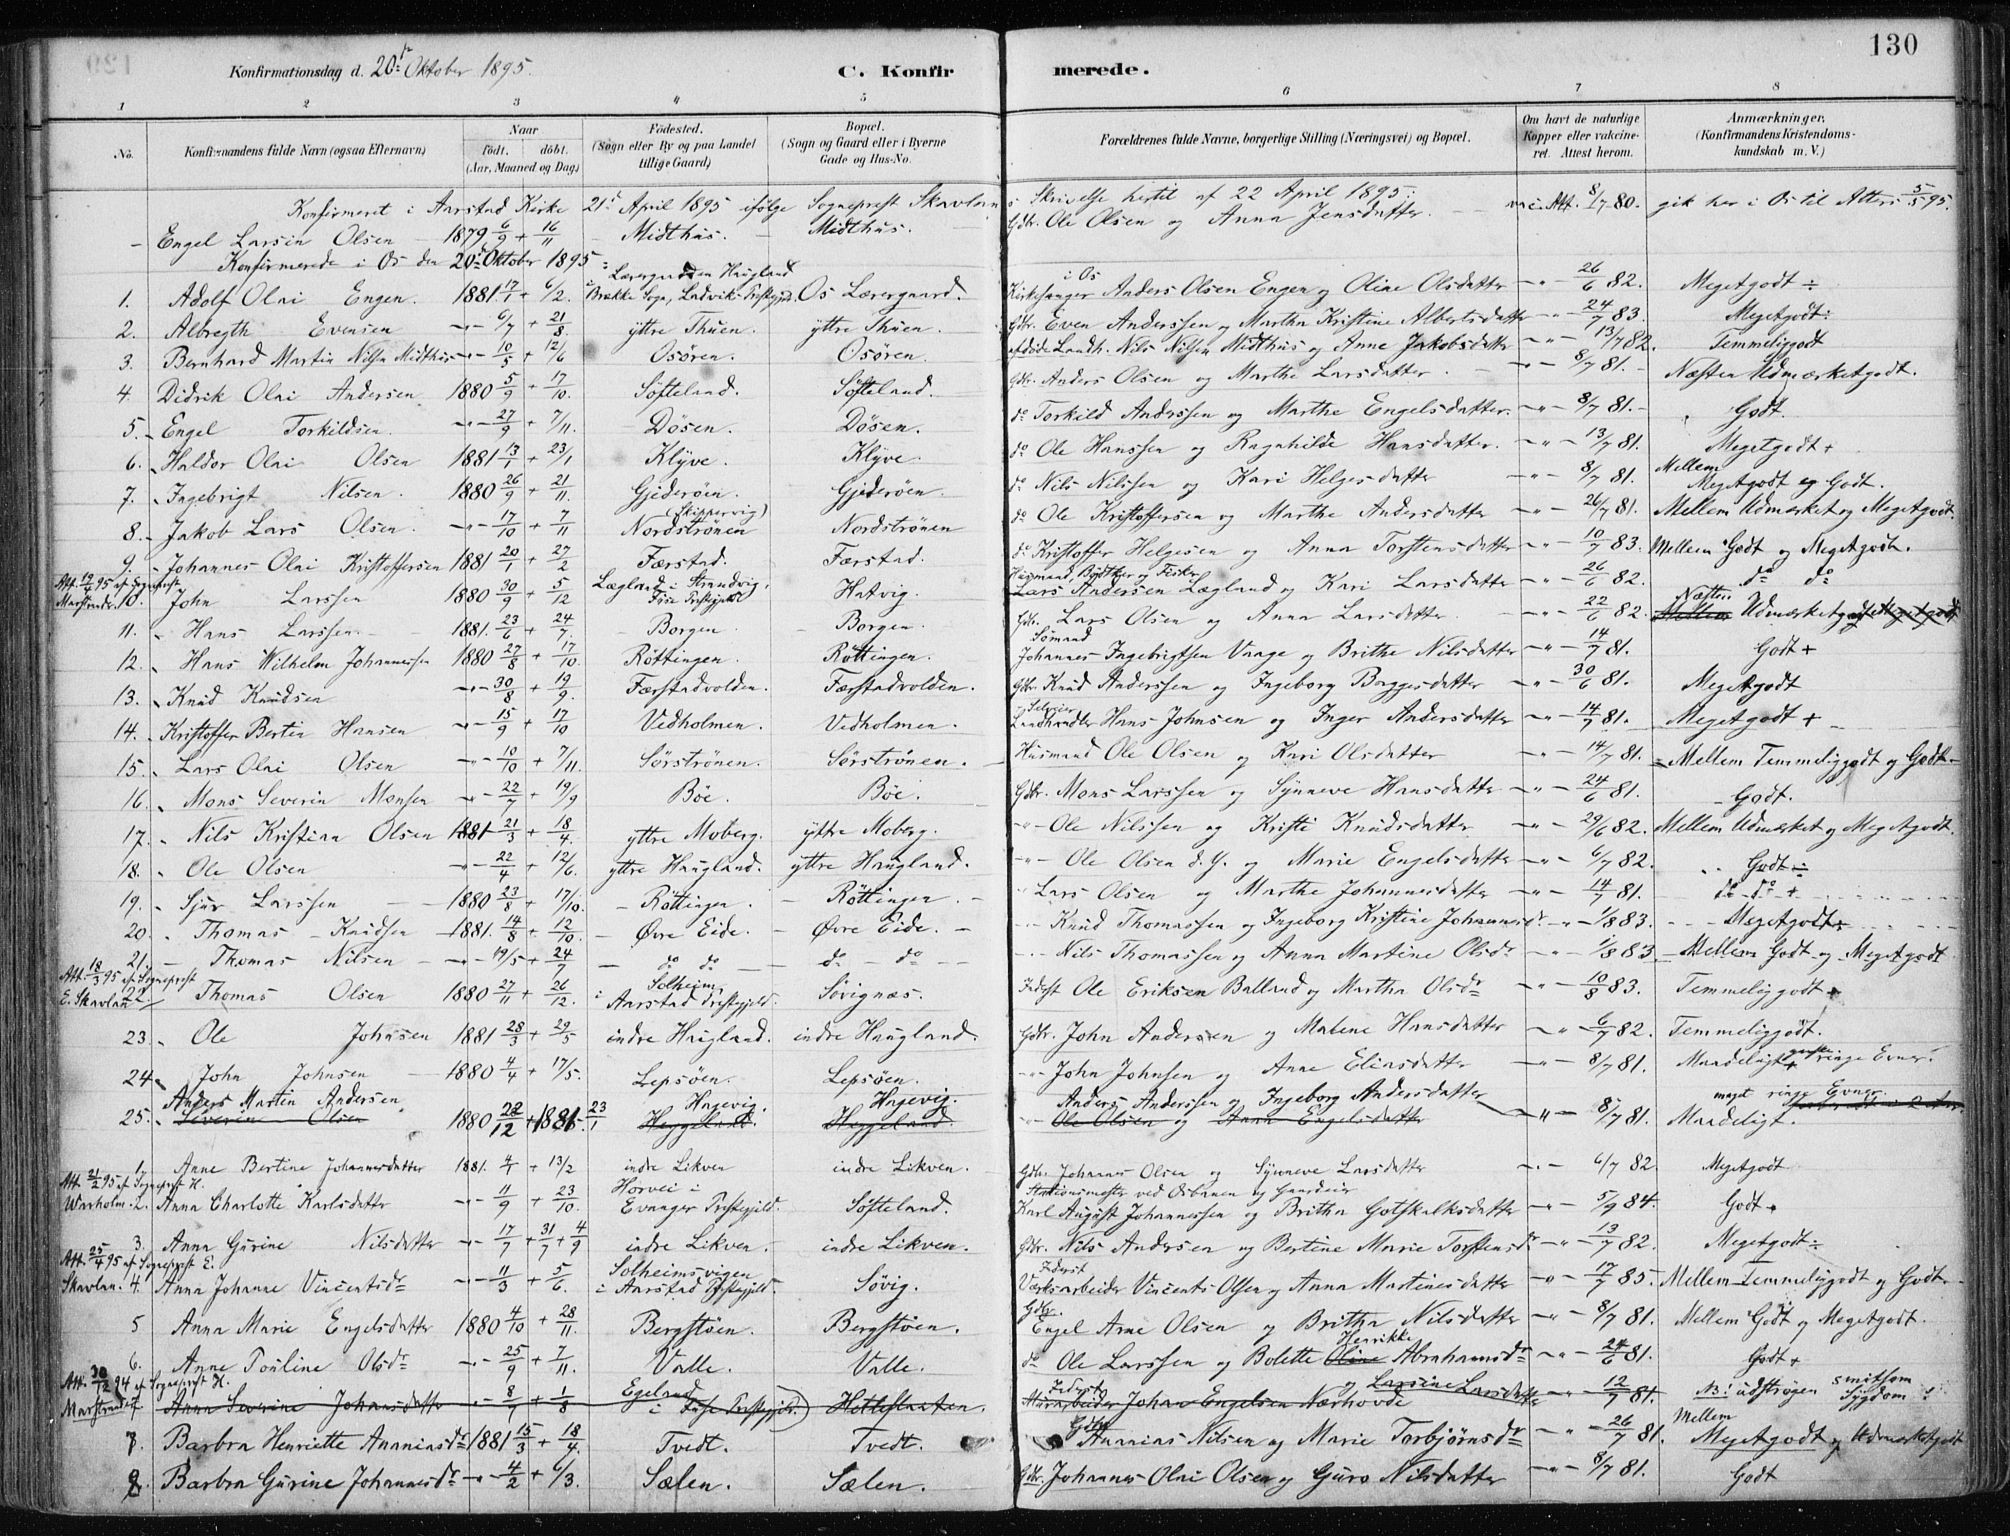 Konfirmationsdag d. 20de Oktober 1895.
C. Konfir merede.
130
1 2 3 4 5 6 7 8
No. Konfirmandens fulde Navn (ogsaa Efternavn) Naar født. døbt. (Aar, Maaned og Dag) Fødested. (Sogn eller By og paa Landet tillige Gaard) Bopæl. (Sogn og Gaard eller i Byerne Gade og Hus-No. Forældrenes fulde Navne, borgerlige Stilling (Næringsvei) og Bopæl. Om havt de naturlige Kopper eller vakcineret. Attest herom. Anmærkninger. (Konfirmandens Kristendomskundskab m. V.)
Konfirmeret i Aarstad Kirke 21de April 1895 ifølge Sogneprest Skavlans Skrivelse hertil af 22 April 1895:
– Engel Larsin Olsen 1879 6/9 + 16/11 Midthus. Midthus. Gbr. Ole Olsen og Anna Jensdatter. vac. Att. 8/7 80. gik her i Os til Alters 5/5 95.
Konfirmerede i Os den 20de Oktober 1895:
1. Adolf Olai Engen. 1881 17/1 + 6/2. Lærergaarden Haugland i Brække Sogn, Ladvik Prestegjæld. Os Lærergaard. Kirkesanger i Os Anders Olsen Engen og Oline Olsdatter -"- 26/6 82. Megetgodt ÷
2. Albregth Evensen -"- 6/7 + 21/8 yttre Thuen. yttre Thuen. Gbr. Even Anderssen og Martha Kristine Albertsdatter -"- 24/7 83. Megetgodt
3. Bernhard Martin Nilsen Midthus -"- 10/5 + 12/6 Osøren. Osøren. afdøde Landh. Nils Nilsen Midthus og Anne Jakobsdatter -"- 13/7 82. Temmeliggodt
4. Didrik Olai Andersen 1880 5/9 + 17/10. Søfteland. Søfteland. Gbr. Anders Olsen og Marthe Larsdatter. -"- 8/7 81. Næsten Udmærketgodt.
5. Engel Torkildsen. -"- 27/9 + 7/11. Døsen. Døsen. do Torkild Anderssen og Marthe Engelsdatter. -"- 8/7 81. Godt.
6. Haldor Olai Olsen 1881 13/1 + 23/1 Klyve. Klyve. do Ole Hanssen og Ragnhilde Hansdatter. -"- 13/7 81. Megetgodt +
7. Ingebrigt Nilsen. 1880 26/9 + 21/11. Gjederøen. Gjederøen. do Nils Nilssen og Kari Helgesdatter -"- 8/7 81. Mellem Megetgodt og Godt.
8. Jakob Lars Olsen. -"- 17/10 + 7/11 (Skippervig) Nordstrønen Nordstrønen do Ole Kristoffersen og Marthe Andersdatter -"- 26/7 81. Mellem Udmærket og Megetgodt.
9. Johannes Olai Kristoffersen 1881 20/1 + 27/2 Færstad. Færstad. do Kristoffer Helgesen og Anna Torstensdatter -"- 10/7 83. Mellem Godt og Megetgodt.
Att. 19/4 95 af Sogneprest Marstrander. 10. John Larssen 1880 30/9 + 5/12 Lægland i Strandvig, Fuse Prestegjeld Hatvig. Husmand, Bødtker og Fisker Lars Andersen Lægland og Kari Larsdatter -"- 26/6 82. do do
11. Hans Larssen 1881. 23/6 + 24/7 Borgen Borgen. Gbr. Lars Olsen og Anna Larsdatter -"- 22/6 82. Næsten Mellem Udmærketgodt
12. Hans Wilhelm Johannessen 1880 27/8 + 17/10. Røttingen. Røttingen. Sømand Johannes Ingebrigtsen Vaage og Brithe Nilsdatter -"- 14/7 81. Godt +
13. Knud Knudsen -"- 30/8 + 19/9. Færstadvolden. Færstadvolden. Gbr. Knud Anderssen og Ingeborg Baggesdatter -"- 30/6 81. Megetgodt
14. Kristoffer Bertin Hansen -"- 15/9 + 17/10 Vedholmen. Vedholmen. Landhandler Hans Johnsen og Inger Andersdatter -"- 14/7 81. Megetgodt +
15. Lars Olai Olsen -"- 10/10 + 7/11. Sørstrønen. Sørstrønen. Husmand Ole Olsen og Kari Olsdatter -"- 14/7 81. Mellem Temmeliggodt og Godt
16. Mons Severin Monsen -"- 22/7 + 19/9 Bøe. Bøe. Gbr. Mons Larssen og Synneve Hansdatter -"- 24/6 81. Godt.
17. Nils Kristian Olsen 1881 21/3 + 18/4. yttre Moberg. yttre Moberg. -"- Ole Nilssen og Kristi Knudsdatter -"- 29/6 82. Mellem Udmærket og Megetgodt.
18. Ole Olsen -"- 22/4 + 12/6. yttre Haugland. yttre Haugland. -"- Ole Olsen d.Y. og Marie Engelsdatter -"- 6/7 82. Godt ÷
19. Sjur Larssen 1880 23/8 + 17/10. Røttingen. Røttingen. -"- Lars Olsen og Marthe Johannesdatter -"- 14/7 81. do do +
20. Thomas Knudsen 1881. 14/8 + 12/10. Øvre Eide. Øvre Eide. -"- Knud Thomassen og Ingeborg Kristine Johannesdr -"- 1/8 83. Megetgodt ÷
21. Thomas Nilsen -"- 19/5 + 24/7 do do do do -"- Nils Thomassen og Anna Martine Olsdr -"- 1/8 83. Mellem Godt og Megetgodt
Att. 18/3 95 af Sogneprest E. Skavlan 22. Thomas Olsen 1880 27/11 + 26/12. Solheim i Aarstad Prestegjeld. Søvignæs. Inderst Ole Eriksen Balland og Martha Olsdr -"- 10/8 83. Temmeliggodt +
23. Ole Johnsen 1881 28/3 + 29/5 indre Haugland. indre Haugland. Gbr. John Andersen og Malene Hansdatter -"- 6/7 82. Temmeliggodt.
24. John Johnsen 1880 4/4 + 17/5. Lepsøen. Lepsøen. -"- John Johnsen og Anne Eliasdatter -"- 8/7 81. Maadeligt + ganske ringe Evner.
25. Anders Martin Andersen Severin Olsen 1880 22/12 + 1881. 23/1 Hagevig. Heggeland. Hagevig. Heggeland. Anders Anderssen og Ingeborg Andersdatter Ole Olsen og Anna Engelsdatter -"- 8/7 81. Maadeligt. meget ringe Evner
1. Anne Bertine Johannesdatter 1881. 4/1 + 13/2 indre Likven indre Likven. Gbr. Johannes Olsen og Synneve Larsdatter -"- 6/7 82. Megetgodt
Att. 21/2 95 af Sogneprest H. Warholm. 2. Anna Charlotte Karlsdatter -"- 11/9 + 23/10. Horvei i Evanger Prestegjeld. Søfteland. Stationsmester ved Osbanen og Gaardeier Karl August Johannessen og Britha Gotskalksdatter -"- 5/9 84. Godt +
3. Anna Gurine Nilsdatter -"- 17/7 + 31/7 + 4/9 indre Likven. indre Likven. Gbr. Nils Andersen og Bertine Marie Torstensdr -"- 13/7 82. Megetgodt ÷
Att. 25/4 95 af Sogneprest E. Skavlan. 4. Anna Johanne Vincentsdr -"- 11/3 + 5/6. Solheimsvigen i Aarstad Prestegjeld. Søvig. Inderst Verksarbeider Vincents Olsen og Anna Martinesdatter -"- 17/7 85. Mellem Temmeliggodt og Godt.
5 Anna Marie Engelsdatter 1880 4/10 + 28/11. Bergstøen. Bergstøen. Gbr. Engel Arne Olsen og Britha Nilsdatter -"- 8/7 81. Mellem Godt og Megetgodt.
6. Anne Pouline Olsdr -"- 25/9 + 7/11. Valle. Valle. do Ole Larssen og Bolette Henrikke Oline Abrahamsdr -"- 24/6 81. Godt +
Att. 30/12 94 af Sogneprest H. Marstrander 7 Anna Severine Johansdatter -"- 8/7 + 1/8 Egeland i Fuse Prestegjeld. Hetleflaaten. Inderst Johan Engelsen Nærhovde og Larsine Larsdatter -"- 12/7 81. NB: udstrøgen smitsom Sygdom!
7. Barbra Henriette Ananiasdr 1881 15/3 + 18/4. Tvedt. Tvedt. Gbr. Ananias Nilsen og Marie Torbjørnsdr -"- 26/7 81. Mellem Megetgodt og Udmærketgodt
8. Barbra Gurine Johannesdr -"- 4/2 + 6/3. Sælen. Sælen. Gbr. Johannes Olai Olsen og Guro Nilsdatter -"- 8/7 81. Godt